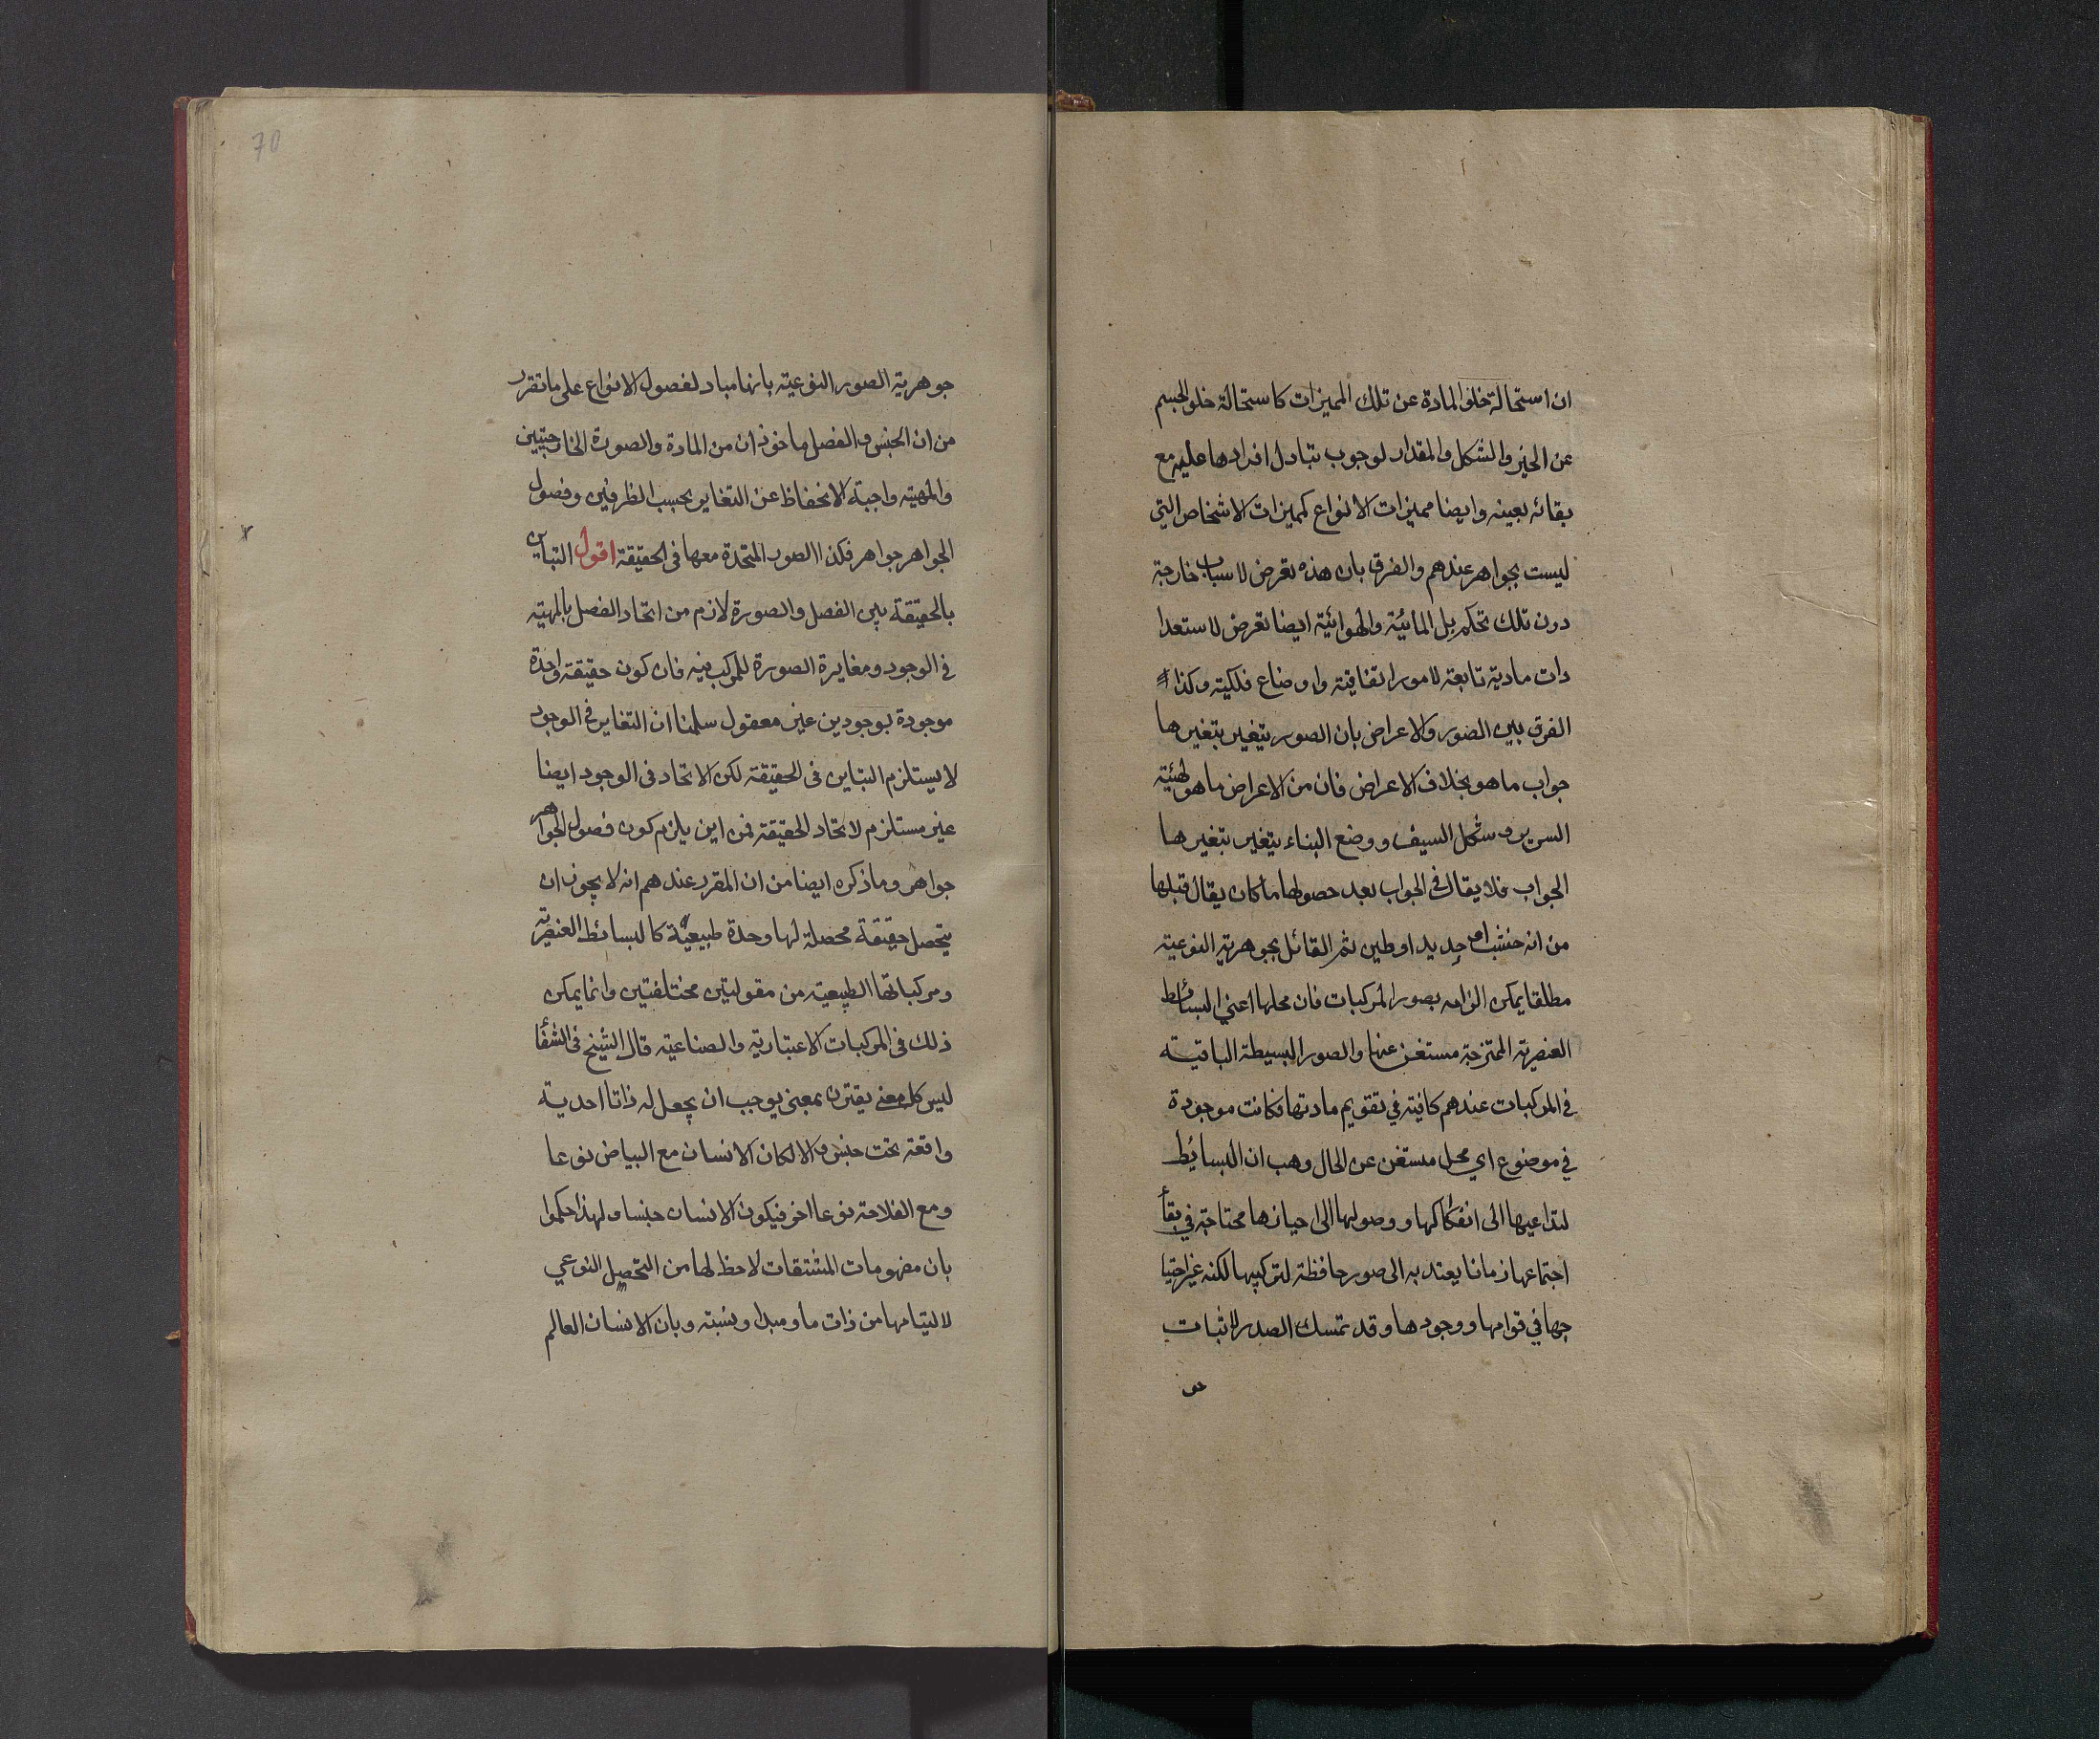 ان استحالة خلو المادة عن تلك المميزات كاستحالة خلو الجسم
عن الحيز والشكل والمقدار لوجوب تبادل افرادها عليه مع
بقائه بعينه وايضا مميزات الانواع كمميزات الاشخاص التي
ليست بجواهر عندهم والفرق بان هذه تعرض لاسباب خارجة
دون تلك تحكم بل المائية والهوائية ايضا تعرض لاستعدا
دات مادية تابعة لامور اتفاقية واوضاع فلكية وكذا
الفرق بين الصور والاعراض بان الصور يتغير بتغيرها
جواب ما هو بخلاف الاعراض فان من الاعراض ما هو كهيئة
السرير وشكل السيف ووضع البناء يتغير بتغيرها
الجواب فلا يقال في الجواب بعد حصولها ما كان يقال قبلها
من انه خشب او حديد او طين ثم القائل بجوهرية النوعية
مطلقا يمكن الزامه بصور المركبات فان محلها اعني البسائط
العنصرية الممتزجة مستغن عنها والصور البسيطة الباقية
في المركبات عندهم كافية في تقويم مادتها فكانت موجودة
في موضوع اي محل مستغن عن الحال وهب ان البسائط
لتداعيها الى انفكاكها ووصولها الى احيازها محتاجة في بقأ
اجتماعها زمانا يعتد به الى صور حافظة لتركيبها لكنه غير احتيا
جها في قوامها ووجودها وقد تمسك الصدر لاثبات
جو
70
جوهرية الصور النوعية بانها مباد لفصول الانواع على ما تقرر
من ان الجنس والفصل ماخوذان من المادة والصورة الخارجيتين
والمهية واجبة الانحفاظ عن التغاير بحسب الظرفين وفصول
الجواهر جواهر فكذا الصور المتحدة معها في الحقيقة اقول التباين
بالحقيقة بين الفصل والصورة لازم من اتحاد الفصل بالمهية
في الوجود ومغايرة الصورة للمركب فيه فان كون حقيقة واحدة
موجودة بوجودين غير معقول سلمنا ان التغاير في الوجود
لا يستلزم التباين في الحقيقة لكن الاتحاد في الوجود ايضا
غير مستلزم لاتحاد الحقيقة فمن اين يلزم كون فصول الجواهر
جواهر وما ذكره ايضا من ان المقرر عندهم انه لا يجوز ان
يتحصل حقيقة محصلة لها وحدة طبيعية كالبسائط العنصرية
ومركباتها الطبيعية من مقولتين مختلفتين وانما يمكن
ذلك في المركبات الاعتبارية والصناعية قال الشيخ في الشفأ
ليس كل معنى يقترن بمعنى يوجب ان يجعل له ذاتا احدية
واقعة تحت جنس والا لكان الانسان مع البياض نوعا
ومع الفلاحة نوعا اخر فيكون الانسان جنسا ولهذا حكموا
بان مفهومات المشتقات لا حظ لها من التحصل النوعي
لالتيامها من ذات ما ومبدا ونسبة وبان الانسان العالم